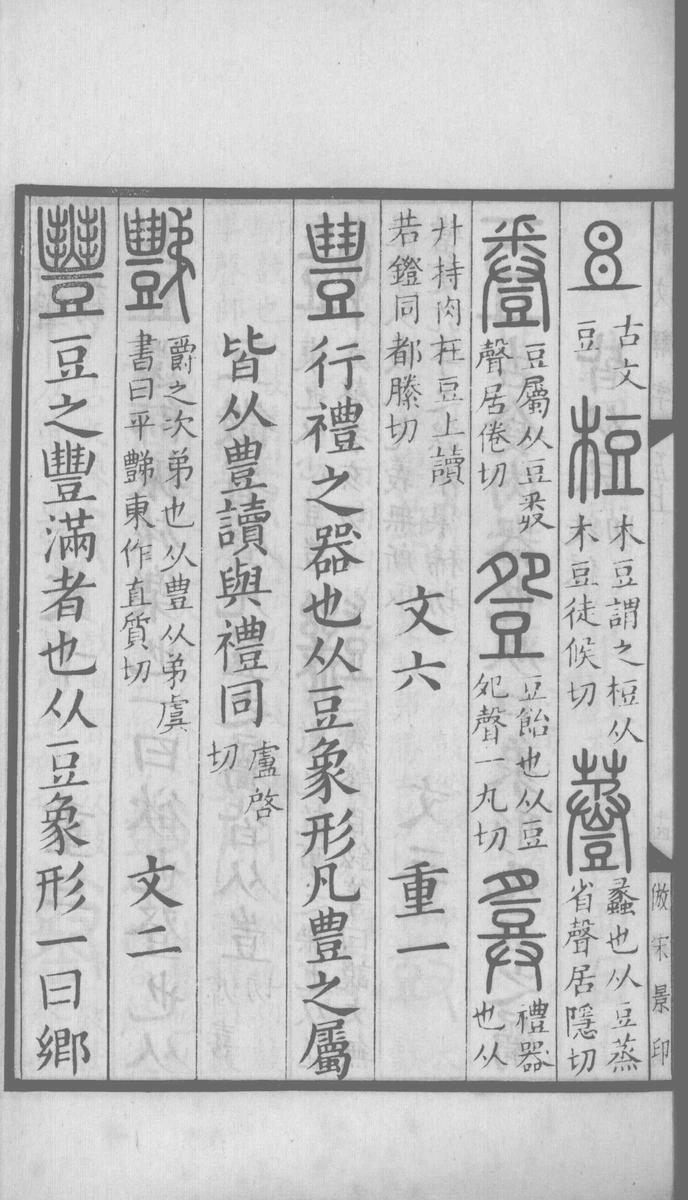 𣅋古文豆梪木豆謂之梪从木豆徒候切𧯷蠡也从豆蒸省聲居隱切
𧯺豆屬从豆𢍏聲居倦切𧯡豆飴也从豆夗聲一丸切𤼷禮器也从
廾持肉在豆上讀若鐙同都滕切　文六　重一
豊行禮之器也从豆象形凡豊之屬
皆从豊讀與禮同盧啓切
豑爵之次弟也从豊从弟虞書曰平豑東作直質切　文二
豐豆之豐滿者也从豆象形一曰鄉
倣宋景印